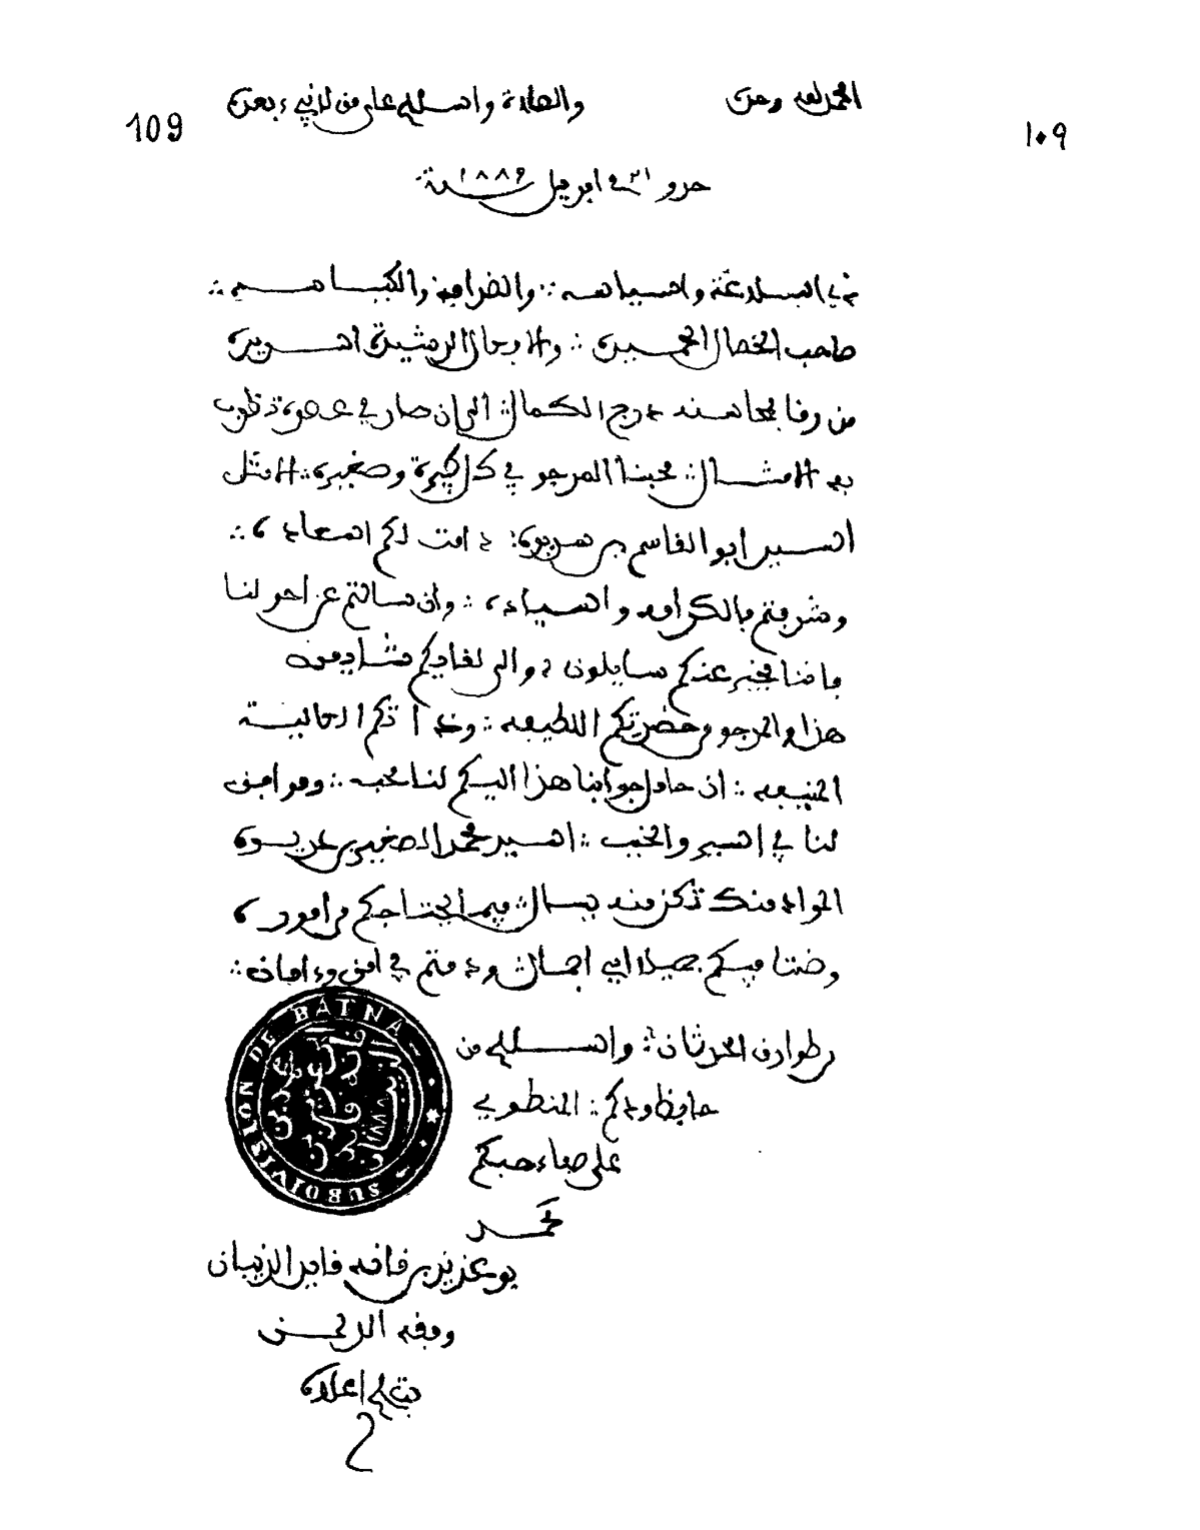 الحمد لله وحده والصلاة والسلام على من لا نبي بعده
109
١٠٩
حرر ٢١ في ابريل سنة ١٨٨٩
ذي البلاغة والسياسة والضرافة والكياسة
صاحب الخصال الحميدة والافعال الرشيدة السديدة
من رقا بمحاسنه درج الكمال الى ان صار في عصره تضرب
به الامثال محبنا المرجو في كل كبيرة وصغيرة الامثل
السيد ابو القاسم بن سديرة دامت لكم السعادة
وشرفتم بالكرامة والسيادة وان سالتم عن احولنا
فاننا بخير عنكم سايلون والى لقايكم
هذا والمرجو من حضرتكم اللطيفة العالية
المنيفة ان حامل جوابنا هذا اليكم لنا محب وموافق
لنا في السير والخبب السيد محمد الصغير بن
المواد منك تكن منه ببال فيما يحتاجكم من امور
وظننا فيكم جميلا اي اجمال ودمتم في امن وامان
من طوارق الحدثان والسلام من
حافظ ودكم المنطوي
على صفاء حبكم
محمد
بوعزيز بن قانه قايد الزيبان
وفقه الرحمن
بتاريخ اعلاه
SUBDIVISION DE BATNA